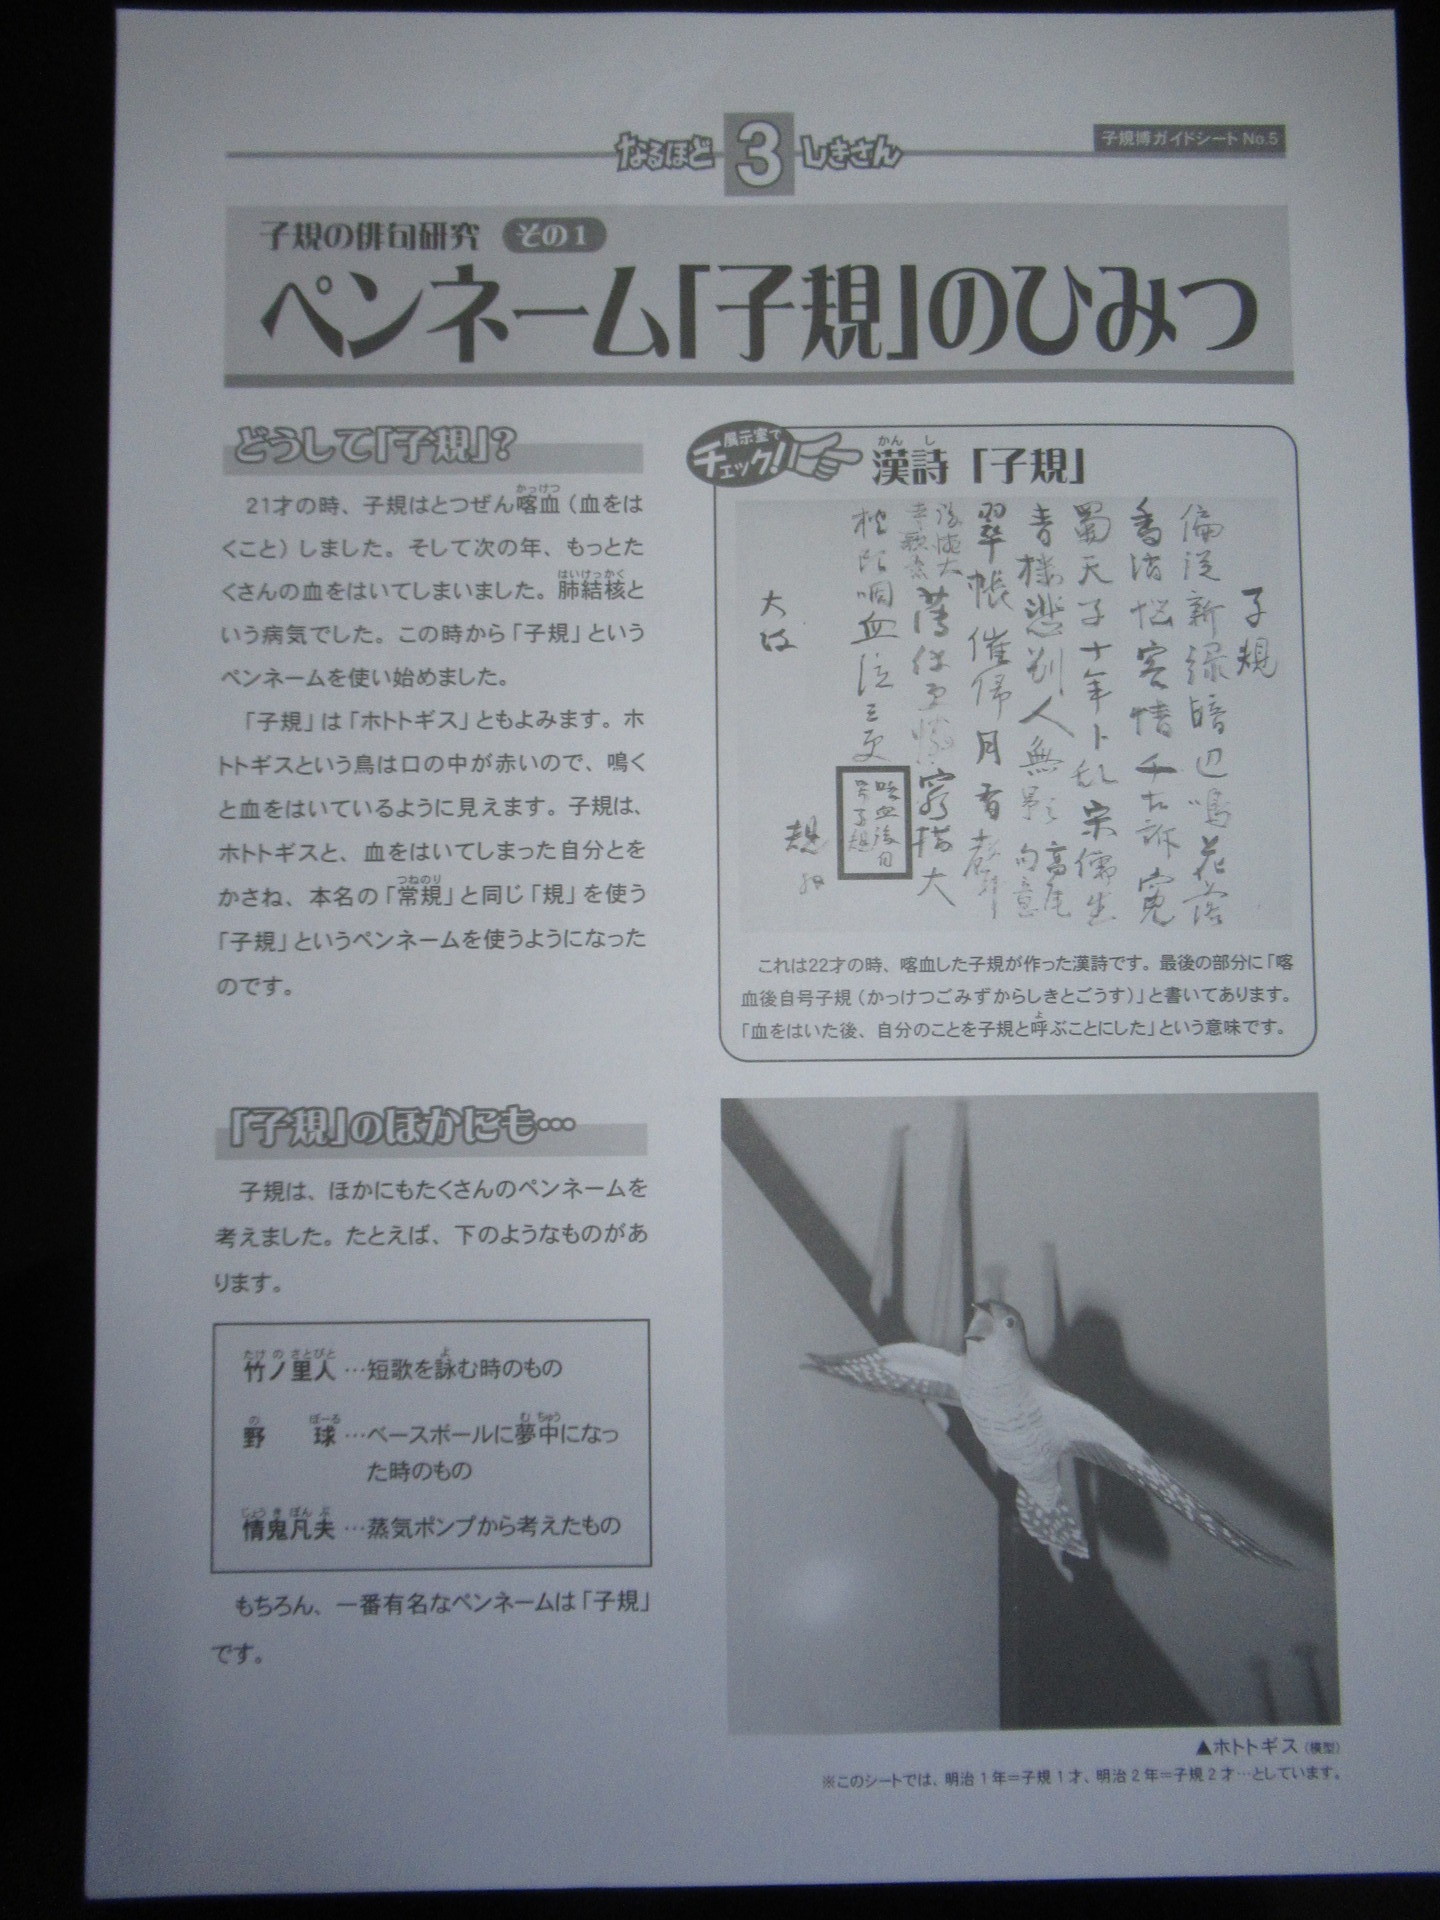 なるほど 3 しきさん
子規博ガイドシート No.5
子規の俳句研究 その1
ペンネーム「子規」のひみつ
どうして「子規」?
21才の時、子規はとつぜん喀血(かっけつ)(血をは
くこと)しました。そして次の年、もっとた
くさんの血をはいてしまいました。肺結核(はいけっかく)と
いう病気でした。この時から「子規」という
ペンネームを使い始めました。
「子規」は「ホトトギス」ともよみます。ホ
トトギスという鳥は口の中が赤いので、鳴く
と血をはいているように見えます。子規は、
ホトトギスと、血をはいてしまった自分とを
かさね、本名の「常規(つねのり)」と同じ「規」を使う
「子規」というペンネームを使うようになった
のです。
展示室で
チェック!
漢詩(かんし)「子規」
子規
新緑暗辺鳴花落
悩客情千古訴寃
蜀天子十年卜乱宋儒生
悲別人無影
翠帳催帰月有
血
喀血後自
号子規
これは22才の時、喀血した子規が作った漢詩です。最後の部分に「喀
血後自号子規(かっけつごみずからしきとごうす)」と書いてあります。
「血をはいた後、自分のことを子規と呼(よ)ぶことにした」という意味です。
「子規」のほかにも…
子規は、ほかにもたくさんのペンネームを
考えました。たとえば、下のようなものがあ
ります。
竹ノ里人(たけのさとびと)…短歌を詠(よ)む時のもの
野球(のぼーる)…ベースボールに夢中(むちゅう)になっ
た時のもの
情鬼凡夫(じょうきぼんぷ)…蒸気ポンプから考えたもの
もちろん、一番有名なペンネームは「子規」
です。
▲ホトトギス(模型)
※このシートでは、明治1年=子規1才、明治2年=子規2才…としています。